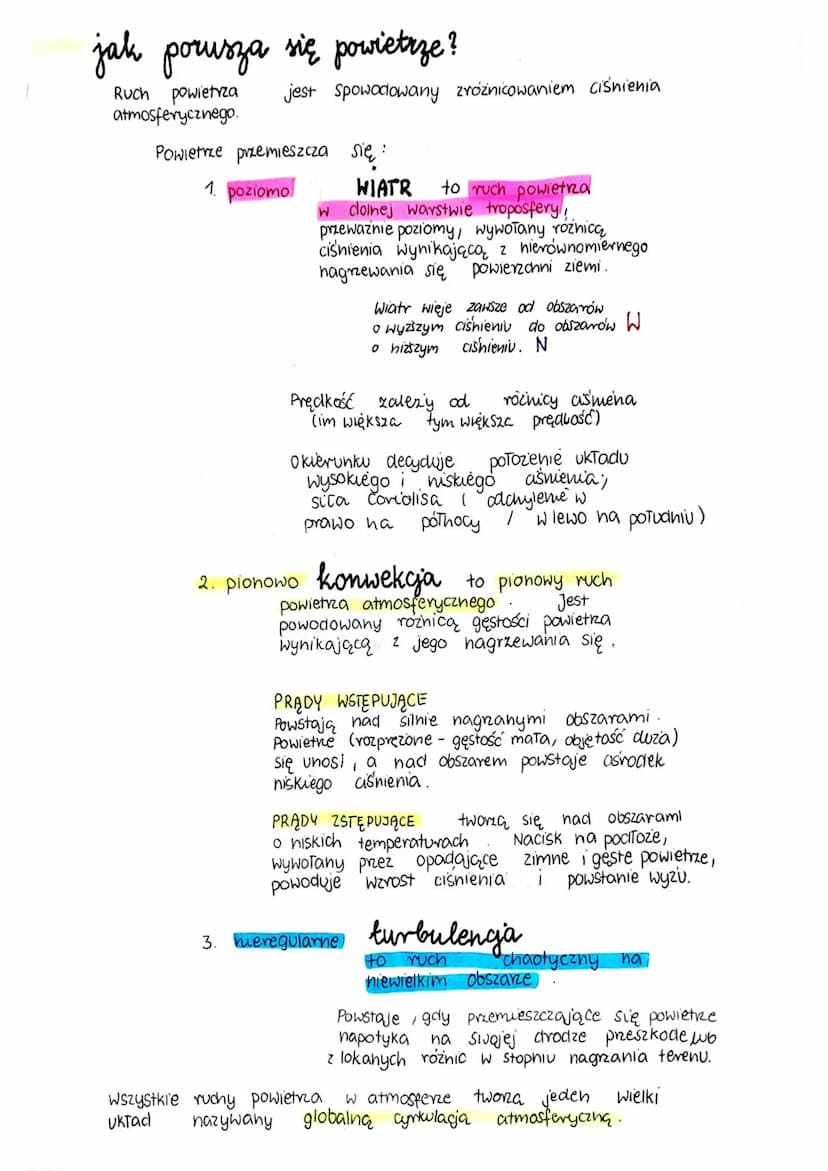 jak porusza się powietrze?
Ruch powietrza jest spowodowany zróżnicowaniem ciśnienia
atmosferycznego.
Powietrze przemieszcza się:
1. poziomo WIATR to ruch powietrza
w dolnej warstwie troposfery,
przeważnie poziomy, wywołany różnicą
ciśnienia wynikającą z nierównomiernego
nagrzewania się powierzchni ziemi.
Wiatr wieje zawsze od obszarów
o wyższym ciśnieniu do obszarów W
o niższym ciśnieniu. N
Prędkość zależy od różnicy ciśnienia
(im większa tym większa prędkość)
O kierunku decyduje położenie układu
wysokiego i niskiego ciśnienia,
siła Coriolisa ( odchylenie w
prawo na północy / w lewo na południu)
2. pionowo konwekcja to pionowy ruch
powietrza atmosferycznego. Jest
powodowany różnicą gęstości powietrza
wynikającą z jego nagrzewania się.
PRĄDY WSTĘPUJĄCE
Powstają nad silnie nagrzanymi obszarami.
Powietrze (rozprężone - gęstość mała, objętość duża)
się unosi, a nad obszarem powstaje ośrodek
niskiego ciśnienia.
PRĄDY ZSTĘPUJĄCE tworzą się nad obszarami
o niskich temperaturach. Nacisk na podłoże,
wywołany przez opadające zimne i gęste powietrze,
powoduje wzrost ciśnienia i powstanie wyżu.
3. nieregularne turbulencja
to ruch chaotyczny na
niewielkim obszarze.
Powstaje, gdy przemieszczające się powietrze
napotyka na swojej drodze przeszkodę lub
z lokanych różnic w stopniu nagrzania terenu.
Wszystkie ruchy powietrza w atmosferze tworzą jeden wielki
układ nazywany globalną cyrkulacją atmosferyczną.